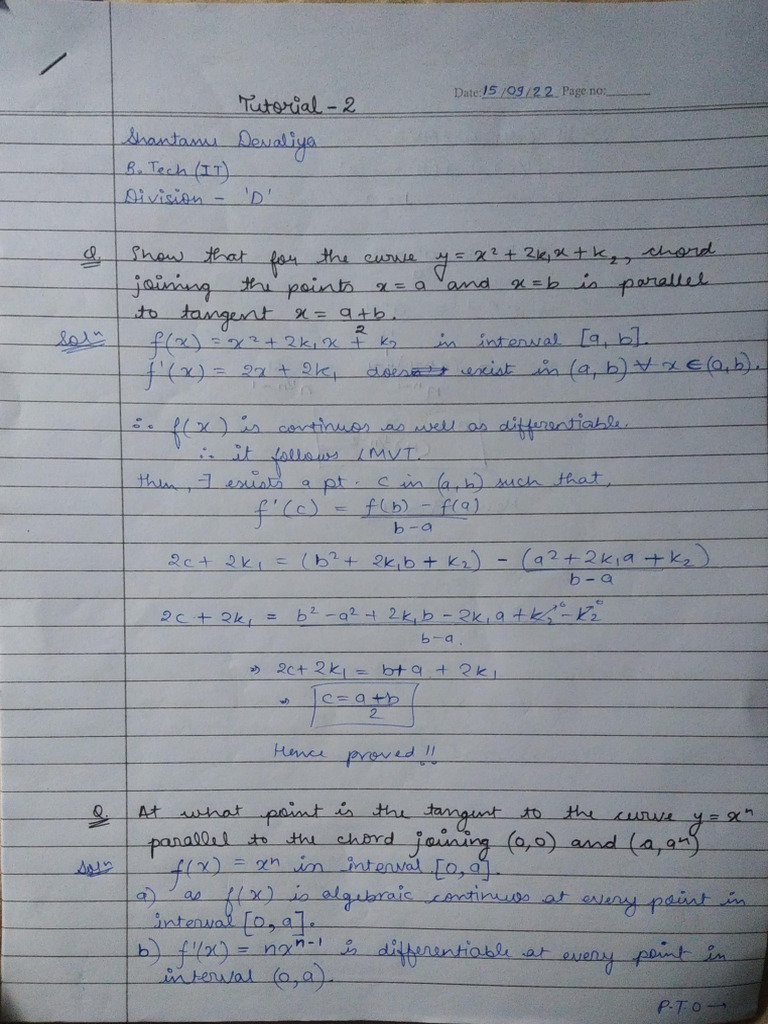 Date: 15/09/22 Page no:
Tutorial - 2
Shantanu Devaliya
B. Tech (IT)
Division - 'D'
Q. Show that for the curve y = x² + 2k₁x + k₂, chord
joining the points x = a and x = b is parallel
to tangent x = a+b/2.
Solⁿ f(x) = x² + 2k₁x + k₂ in interval [a, b].
f'(x) = 2x + 2k₁ does exist in (a, b) ∀ x ∈ (a, b).
∴ f(x) is continuos as well as differentiable.
∴ it follows LMVT.
then, ∃ exists a pt. c in (a, b) such that,
f'(c) = f(b) - f(a)
b-a
2c + 2k₁ = (b² + 2k₁b + k₂) - (a² + 2k₁a + k₂)
b-a
2c + 2k₁ = b² - a² + 2k₁b - 2k₁a + k₂ - k₂
b-a.
⇒ 2c + 2k₁ = b + a + 2k₁
⇒ c = a+b
2
Hence proved!!
Q. At what point is the tangent to the curve y = xⁿ
parallel to the chord joining (0,0) and (a, aⁿ)
Solⁿ f(x) = xⁿ in interval [0, a].
a) as f(x) is algebraic continuos at every point in
interval [0, a].
b) f'(x) = nxⁿ⁻¹ is differentiable at every point in
interval (0, a).
P.T.O →